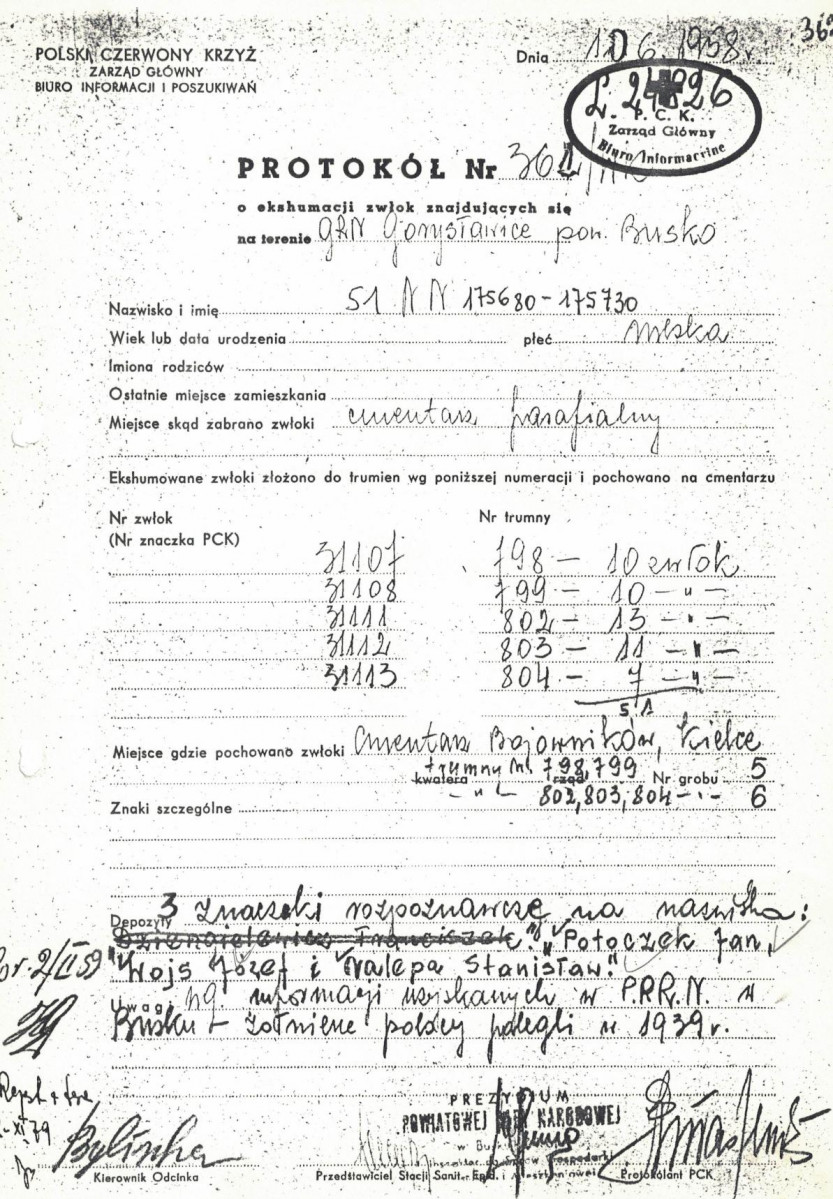 POLSKI CZERWONY KRZYŻ
ZARZĄD GŁÓWNY
BIURO INFORMACJI I POSZUKIWAŃ
Dnia 10 6. 1958 r.
362
L. 24826
P. C. K.
Zarząd Główny
Biuro Informacyjne
PROTOKÓŁ Nr 362
o ekshumacji zwłok znajdujących się
na terenie GRN Gorysławice pow. Busko
Nazwisko i imię 51 NN 175680-175730
Wiek lub data urodzenia płeć męska
Imiona rodziców
Ostatnie miejsce zamieszkania
Miejsce skąd zabrano zwłoki cmentarz parafialny
Ekshumowane zwłoki złożono do trumien wg poniższej numeracji i pochowano na cmentarzu
Nr zwłok Nr trumny
(Nr znaczka PCK)
31107 798 - 10 zwłok
31108 799 - 10 - " -
31111 802 - 13 - " -
31112 803 - 11 - " -
31113 804 - 7 - " -
51
Miejsce gdzie pochowano zwłoki Cmentarz Bojowników, Kielce
kwatera trumny Nr 798,799 rząd Nr grobu 5
- " - 802,803,804 - " - 6
Znaki szczególne
Depozyty 3 znaczki rozpoznawcze na nazwiska:
Franciszek" "Potoczek Jan,
"Wojs Józef i Nalepa Stanisław."
Uwagi wg informacji uzyskanych w P.P.R.N. w
Busku - żołnierze polscy polegli w 1939 r.
2/II 59
Rejest
XI 79
PREZYDIUM
POWIATOWEJ RADY NARODOWEJ
Kierownik Odcinka Przedstawiciel Stacji Sanit. Epid. Protokólant PCK